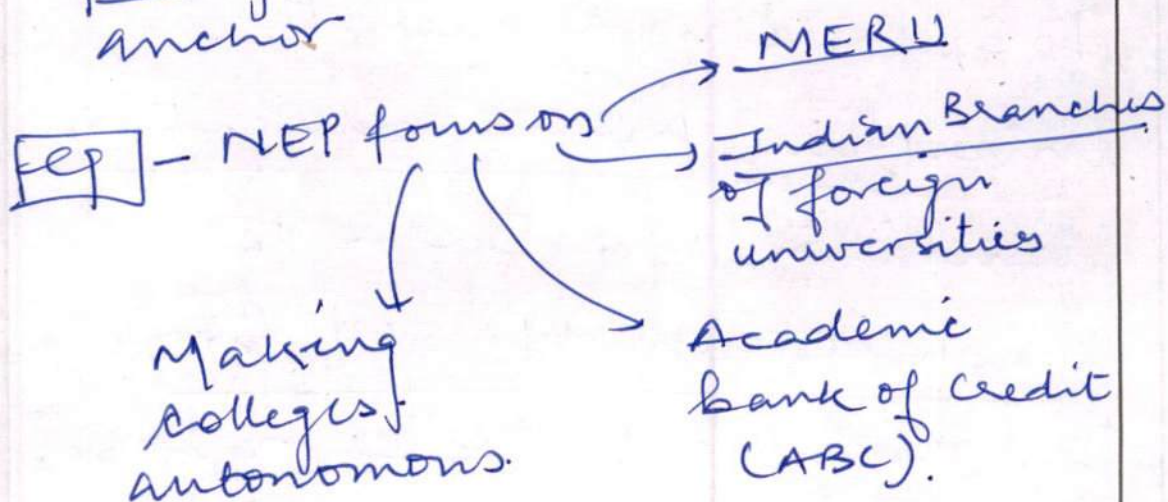 anchor
eg - NEP focus on
MERU
Indian Branches
of foreign
universities
Making
colleges
autonomous.
Academic
bank of credit
(ABC).